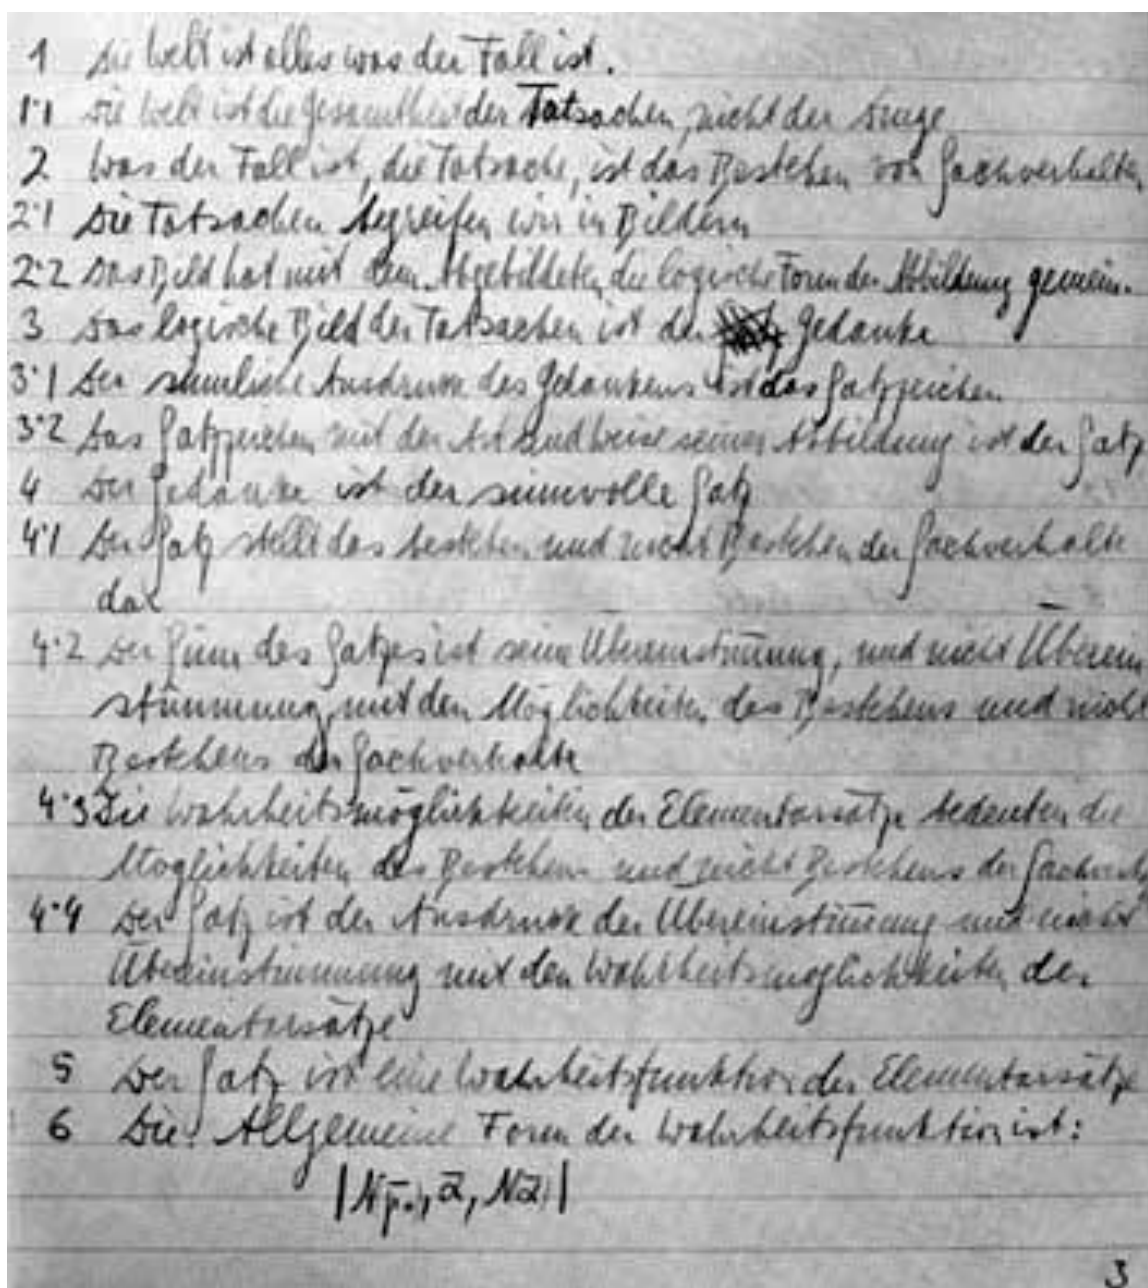 1 Die Welt ist alles was der Fall ist.
1·1 Die Welt ist die Gesamtheit der Tatsachen, nicht der Dinge
2 Was der Fall ist, die Tatsache, ist das Bestehen von Sachverhalten
2·1 Die Tatsachen begreifen wir in Bildern
2·2 Das Bild hat mit dem Abgebildeten die logische Form der Abbildung gemein.
3 Das logische Bild der Tatsachen ist der Gedanke
3·1 Der sinnliche Ausdruck des Gedankens ist das Satzzeichen
3·2 Das Satzzeichen mit der Art und Weise seiner Abbildung ist der Satz
4 Der Gedanke ist der sinnvolle Satz
4·1 Der Satz stellt das bestehen und nicht Bestehen der Sachverhalte
dar
4·2 Der Sinn des Satzes ist seine Übereinstimmung, und nicht Überein
stimmung, mit den Möglichkeiten des Bestehens und nicht
Bestehens der Sachverhalte
4·3 Die Wahrheitsmöglichkeiten der Elementarsätze bedeuten die
Möglichkeiten des Bestehens und nicht Bestehens der Sachverh
4·4 Der Satz ist der Ausdruck der Übereinstimmung und nicht
Übereinstimmung mit den Wahrheitsmöglichkeiten der
Elementarsätze
5 Der Satz ist eine Wahrheitsfunktion der Elementarsätze
6 Die Allgemeine Form der Wahrheitsfunktion ist:
3